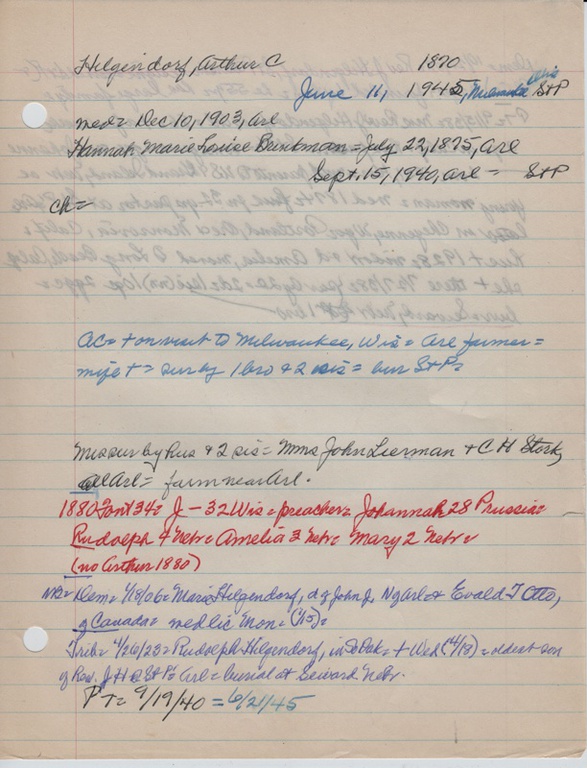 Hilgendorf, Arthur C 1870
June 11, 1945, Milwaukee Wis StP
med= Dec 10, 1903, Arl
Hannah Marie Louise Brinkman = July 22, 1875, Arl
Sept. 15, 1940, Arl = StP
ch=
AC= + on visit to Milwaukee, Wis = Arl farmer =
wife + = sur by 1 bro & 2 sis = bur StP=
Mrs sur by hus & 2 sis = Mmes John Lierman & C H Stork,
all Arl = farm near Arl.
1880 Font 34= J - 32 Wis = preacher = Johannah 28 Prussia=
Rudolph 4 Nebr= Amelia 3 Nebr= Mary 2 Nebr=
(no Arthur 1880)
NB= Dem= 4/18/06= Marie Hilgendorf, d of John J, N of Arl & Evald T Otto,
of Canada= med lic Mon=
Trib= 4/26/23= Rudolph Hilgendorf, in SoDak= + Wed (4/18) = oldest son
of Rev. J H @ StP's Arl = burial at Seward Nebr.
PT= 9/19/40 = 6/21/45